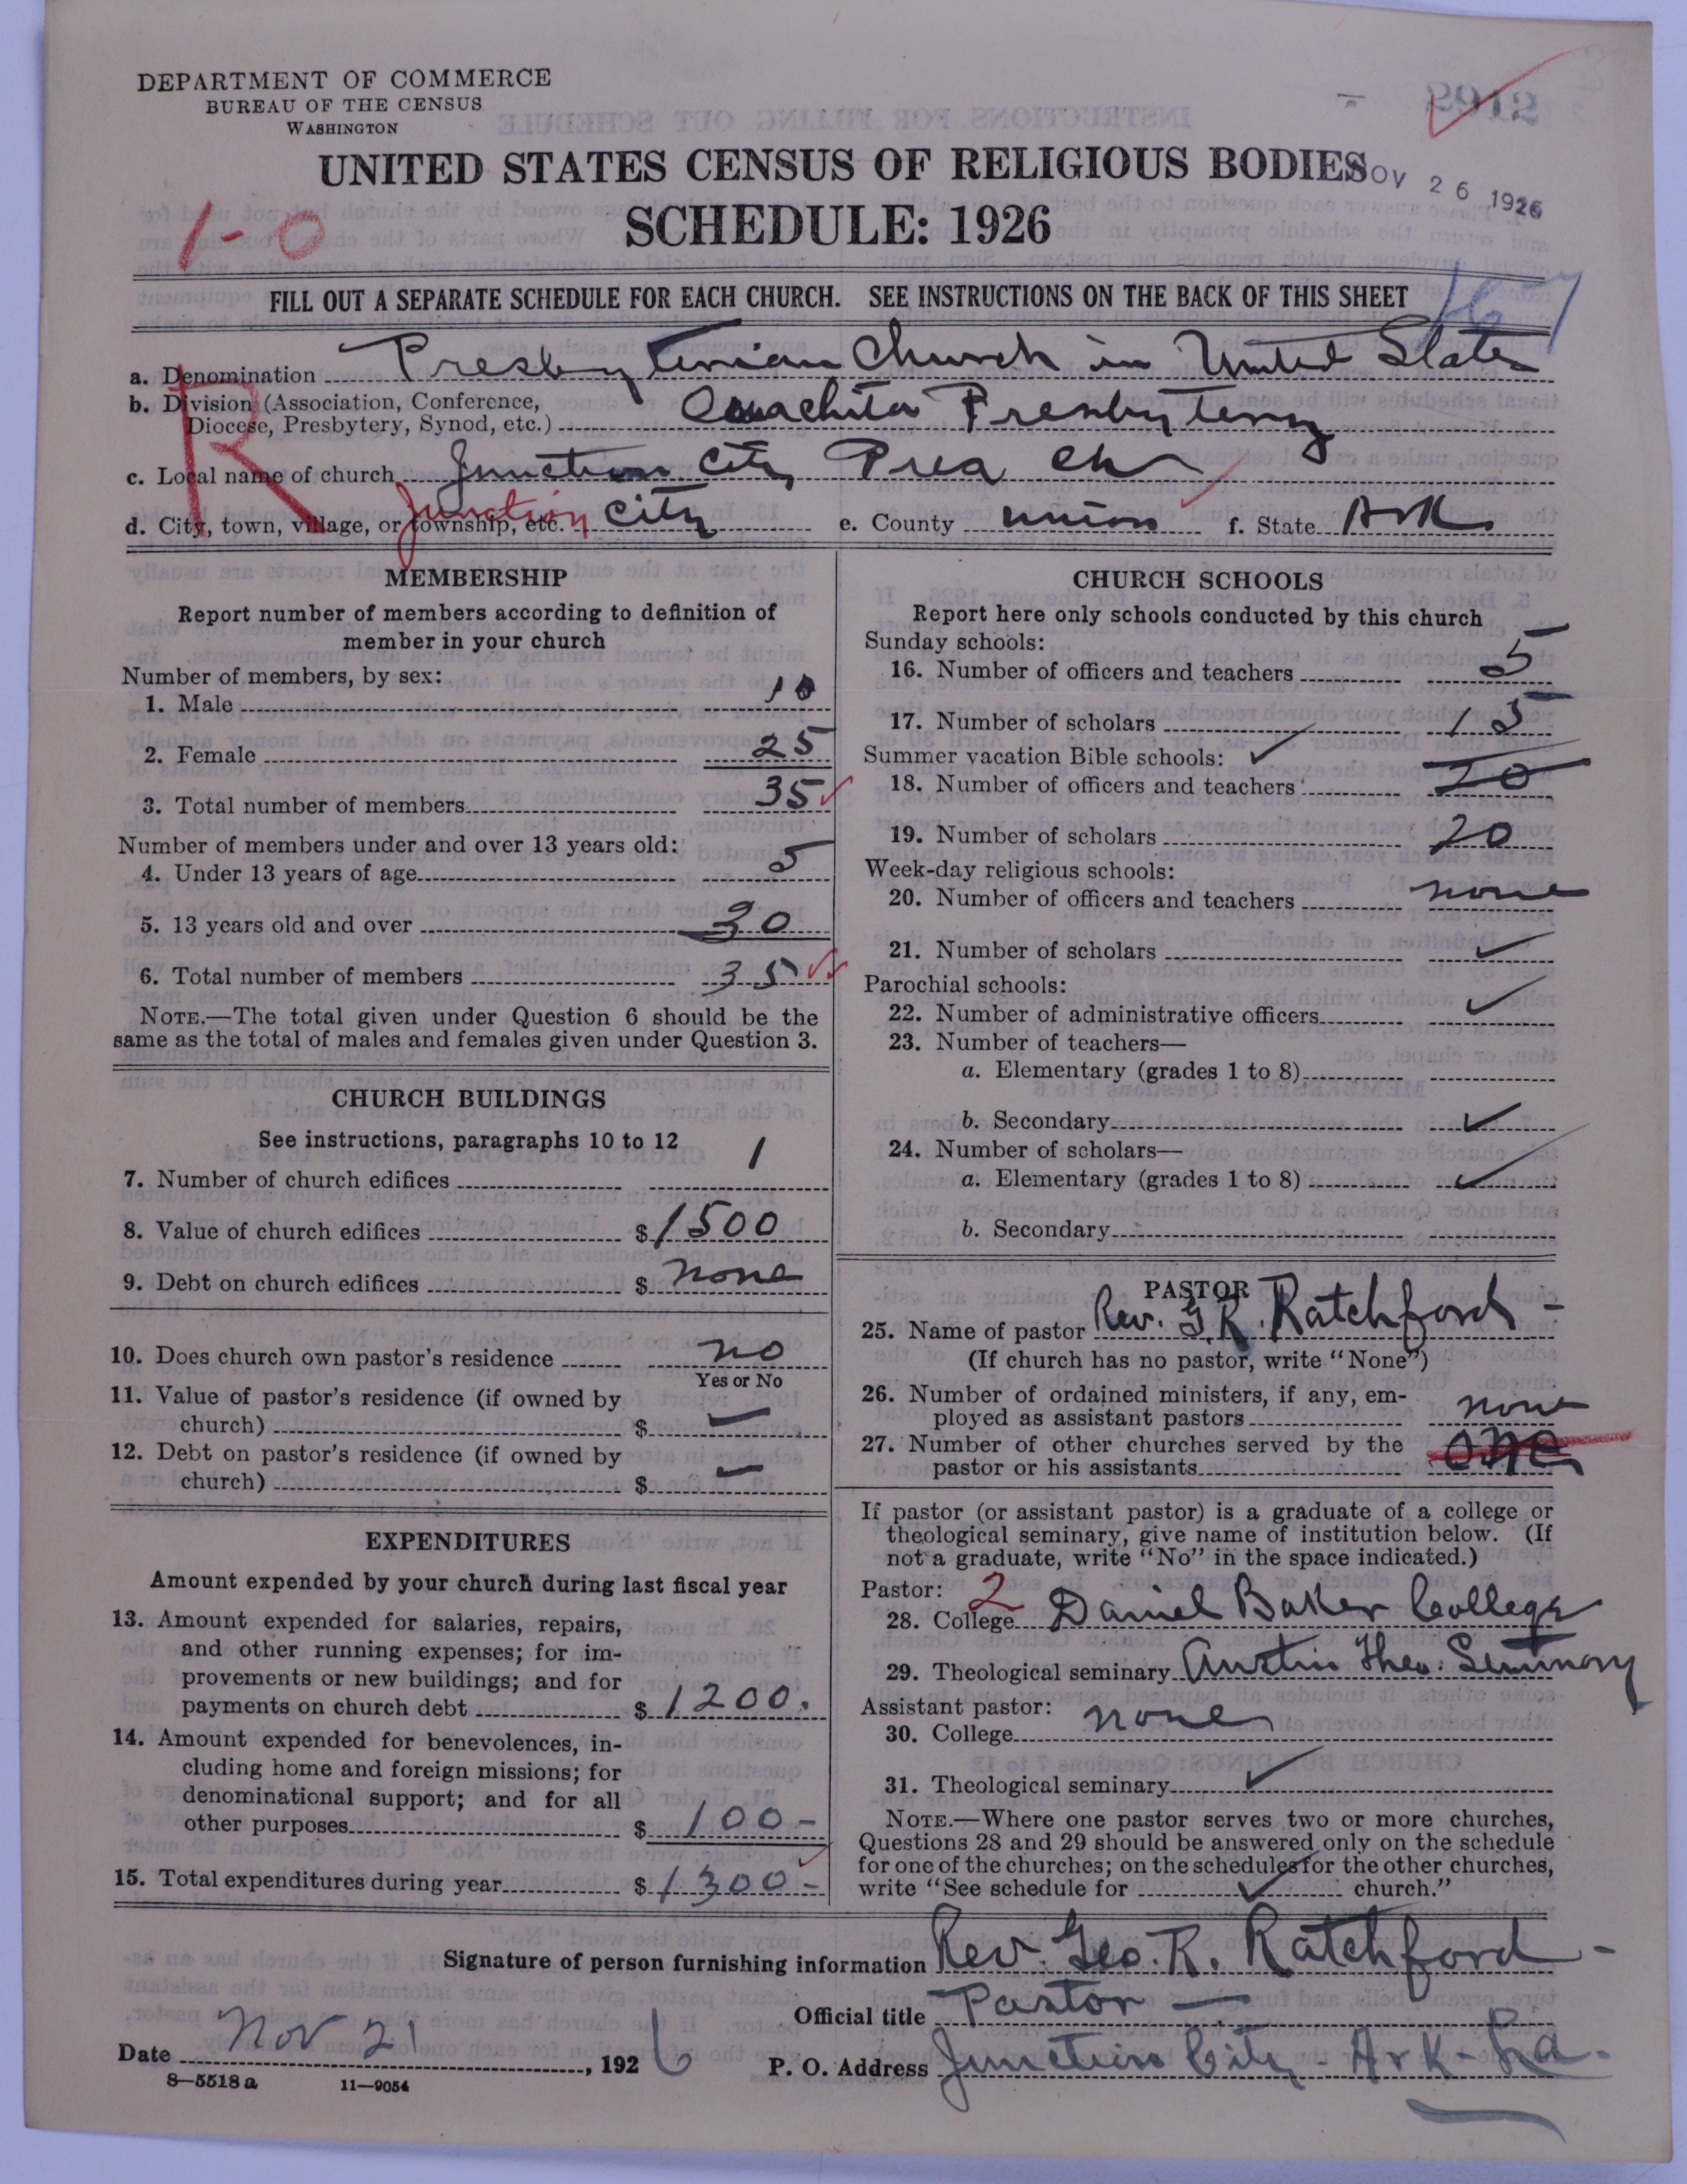 DEPARTMENT OF COMMERCE
BUREAU OF THE CENSUS
WASHINGTON
UNITED STATES CENSUS OF RELIGIOUS BODIES
NOV 26 1926
SCHEDULE: 1926
1-0
FILL OUT A SEPARATE SCHEDULE FOR EACH CHURCH. SEE INSTRUCTIONS ON THE BACK OF THIS SHEET
R
a. Denomination Presbyterian Church in United States
b. Division (Association, Conference,
Diocese, Presbytery, Synod, etc.) Ouachita Presbytery
c. Local name of church Junction City Pres Ch
d. City, town, village, or township, etc. Junction City e. County Union f. State Ark
MEMBERSHIP
Report number of members according to definition of
member in your church
Number of members, by sex:
1. Male 10
2. Female 25
3. Total number of members 35
Number of members under and over 13 years old:
4. Under 13 years of age 5
5. 13 years old and over 30
6. Total number of members 35
NOTE.—The total given under Question 6 should be the
same as the total of males and females given under Question 3.
CHURCH BUILDINGS
See instructions, paragraphs 10 to 12
7. Number of church edifices 1
8. Value of church edifices $ 1500
9. Debt on church edifices $ none
10. Does church own pastor's residence no
Yes or No
11. Value of pastor's residence (if owned by
church) $ —
12. Debt on pastor's residence (if owned by
church) $ —
EXPENDITURES
Amount expended by your church during last fiscal year
13. Amount expended for salaries, repairs,
and other running expenses; for im-
provements or new buildings; and for
payments on church debt $ 1200.
14. Amount expended for benevolences, in-
cluding home and foreign missions; for
denominational support; and for all
other purposes $ 100-
15. Total expenditures during year $ 1300-
CHURCH SCHOOLS
Report here only schools conducted by this church
Sunday schools:
16. Number of officers and teachers 5
17. Number of scholars 15
Summer vacation Bible schools: ✓
18. Number of officers and teachers 20
19. Number of scholars 20
Week-day religious schools:
20. Number of officers and teachers none
21. Number of scholars ✓
Parochial schools:
22. Number of administrative officers ✓
23. Number of teachers—
a. Elementary (grades 1 to 8)
b. Secondary ✓
24. Number of scholars—
a. Elementary (grades 1 to 8) ✓
b. Secondary
PASTOR
25. Name of pastor Rev. G.R. Ratchford -
(If church has no pastor, write "None")
26. Number of ordained ministers, if any, em-
ployed as assistant pastors none
27. Number of other churches served by the
pastor or his assistants one
If pastor (or assistant pastor) is a graduate of a college or
theological seminary, give name of institution below. (If
not a graduate, write "No" in the space indicated.)
Pastor: 2
28. College Daniel Baker College
29. Theological seminary Austin Theo. Seminary
Assistant pastor:
30. College none
31. Theological seminary ✓
NOTE.—Where one pastor serves two or more churches,
Questions 28 and 29 should be answered only on the schedule
for one of the churches; on the schedules for the other churches,
write "See schedule for ✓ church."
Signature of person furnishing information Rev. Geo. R. Ratchford -
Official title Pastor —
Date Nov 21, 1926
P. O. Address Junction City - Ark-La.
8—5518 a 11—9054